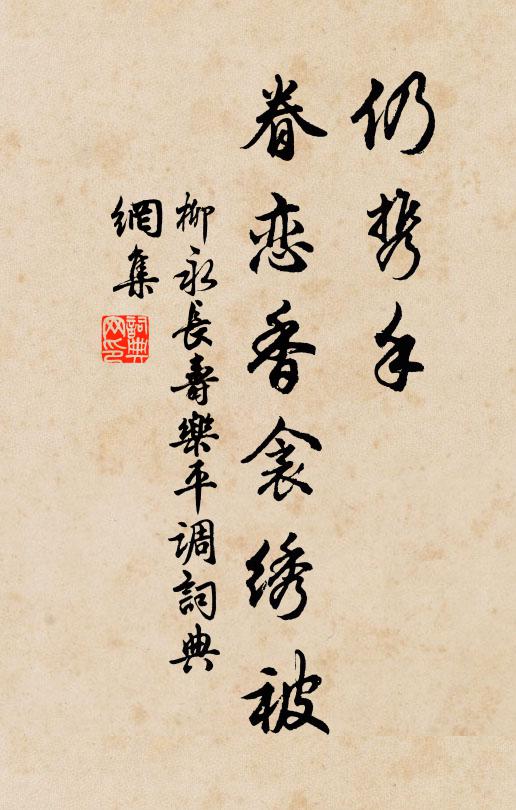 仍携手
眷恋香衾绣被
柳永長壽樂平调詞典
網集
詞典
网印